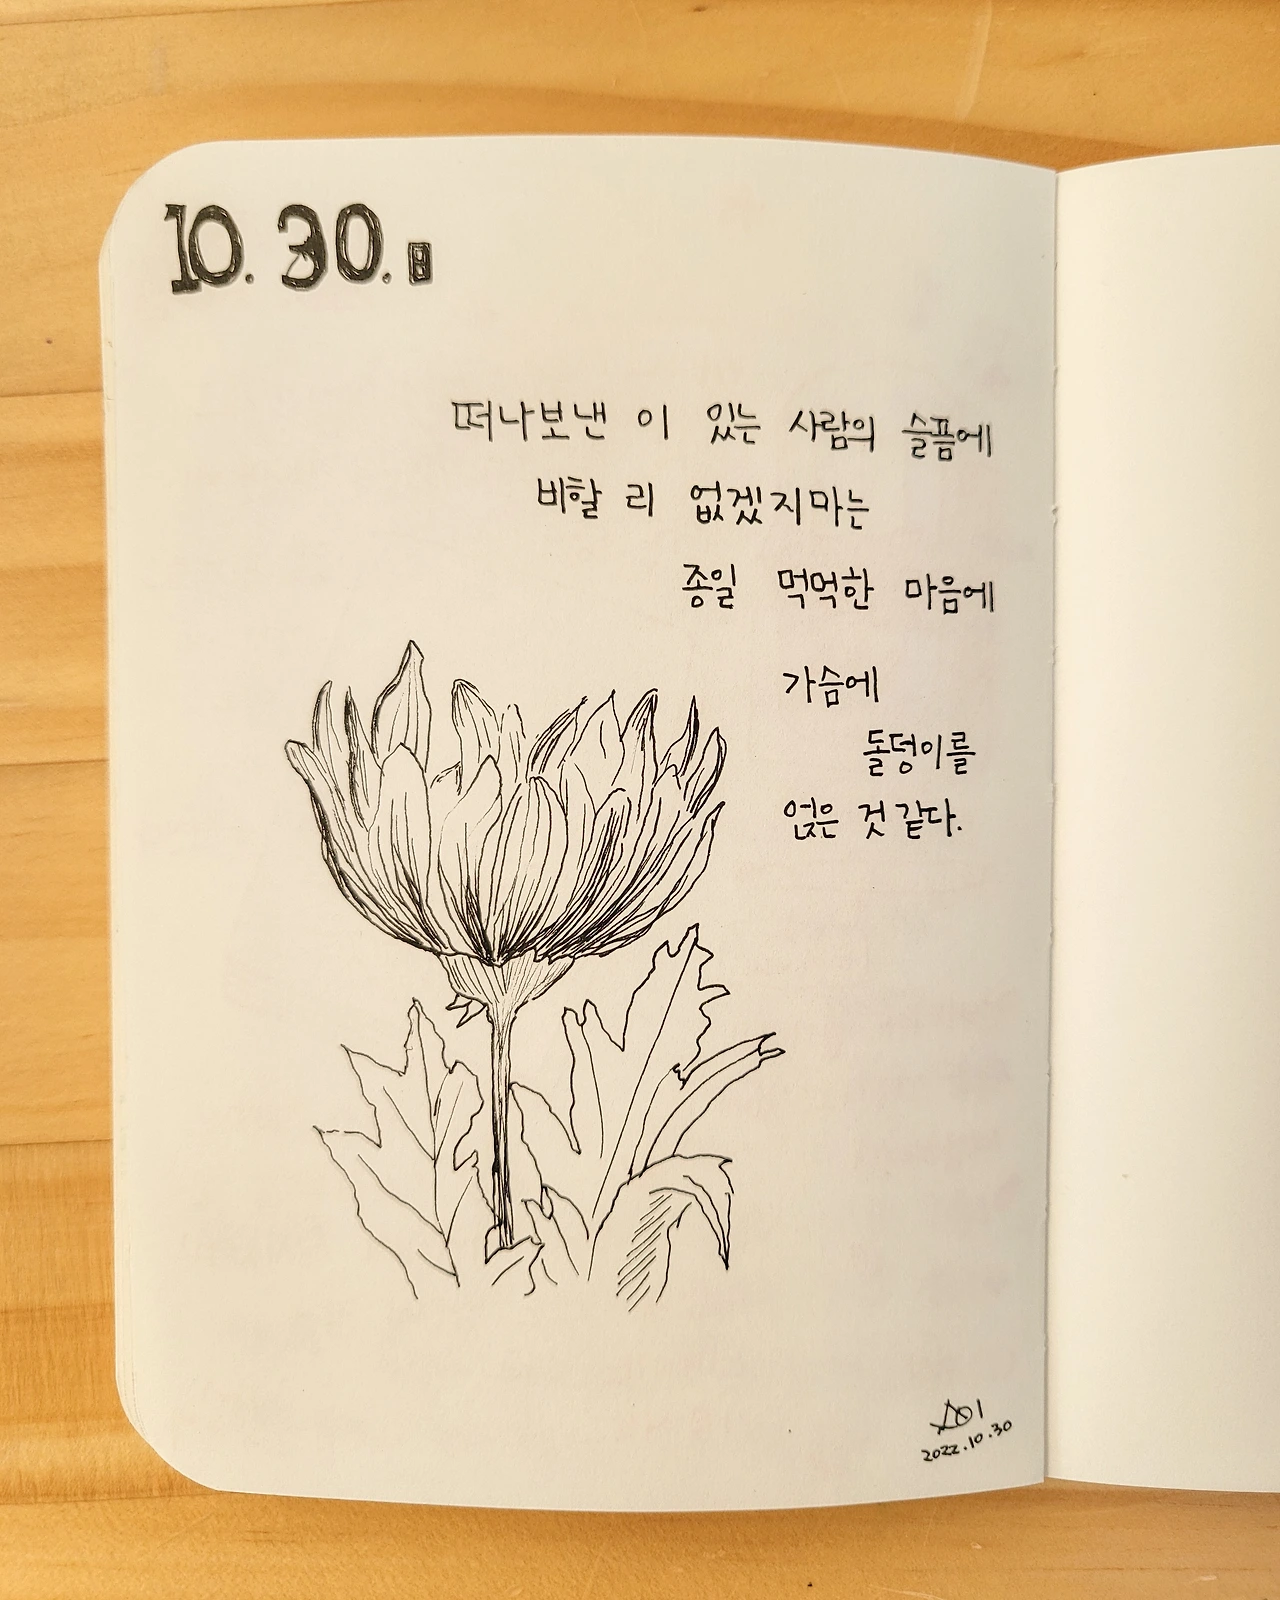 10. 30. 日
떠나보낸 이 있는 사람의 슬픔에
비할 리 없겠지마는
종일 먹먹한 마음에
가슴에
돌덩이를
얹은 것 같다.
2022.10.30